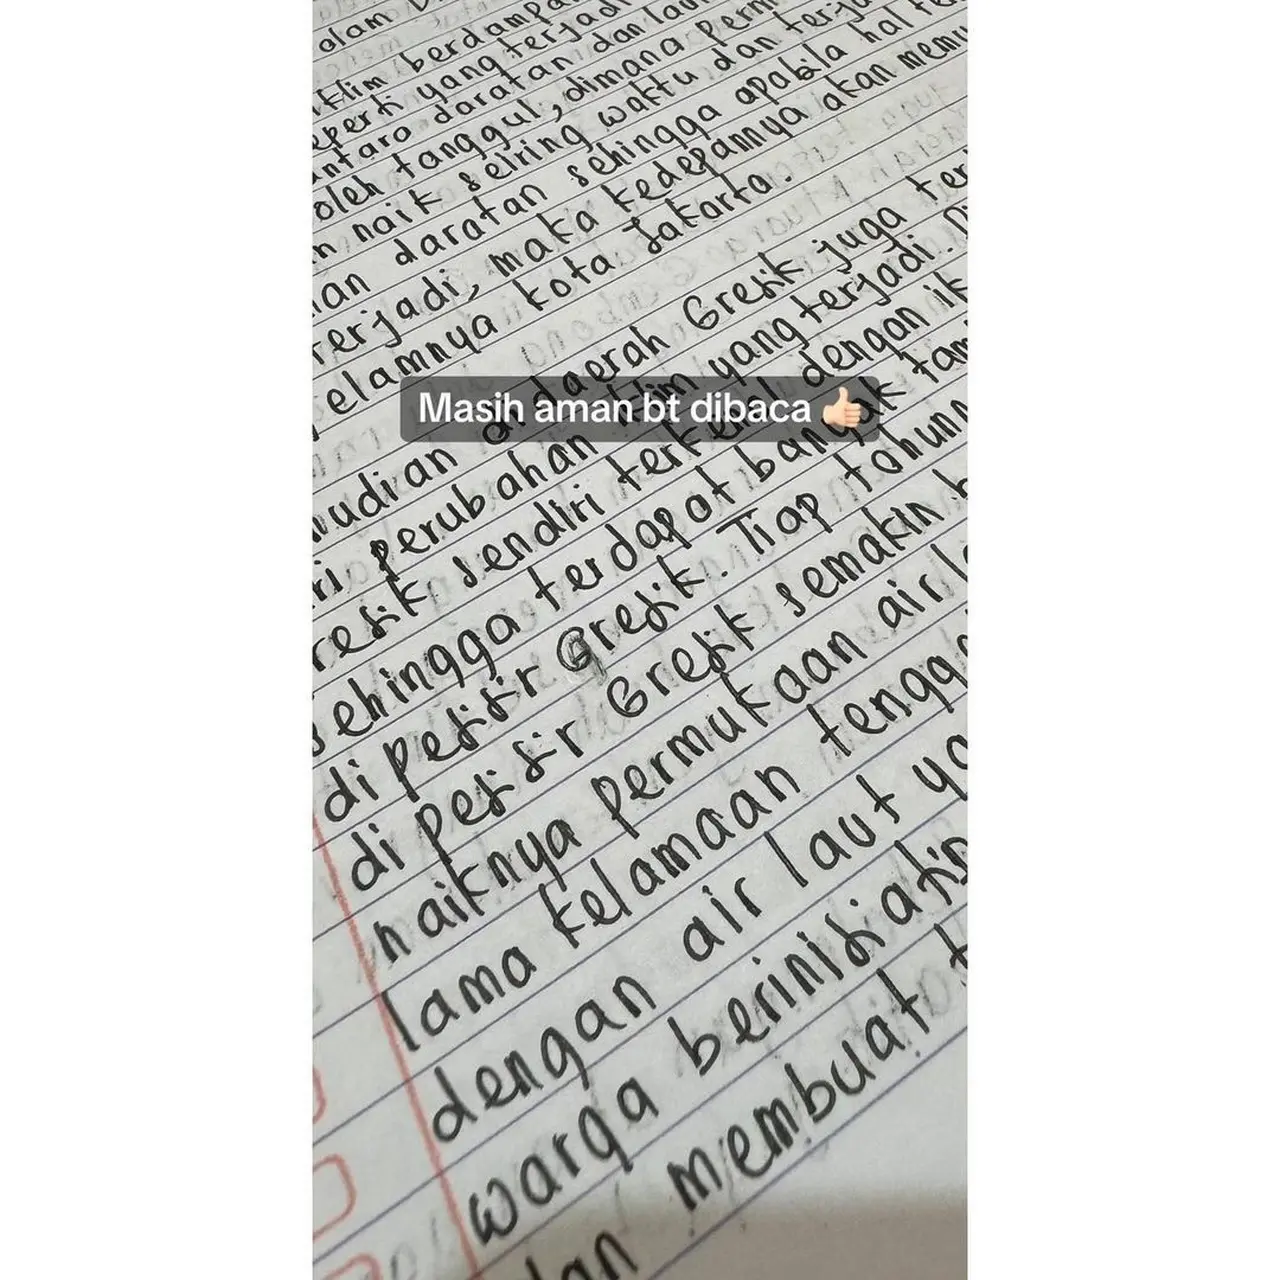 alam
iklim berdampa
seperti yang terjadi
antara daratan dan lau
oleh tanggul, dimana perm
n naik seiring waktu dan terja
an daratan sehingga apabila hal te
terjadi, maka kedepannya akan memu
elamnya kota Jakarta.
mudian di daerah Gresik juga ter
ri perubahan iklim yang terjadi.
resik sendiri terkenal dengan ik
sehingga terdapat banyak tam
di pesisir Gresik. Tiap tahunn
di pesisir Gresik semakin b
naiknya permukaan air l
lama kelamaan tengg
dengan air laut ya
warga berinisiatip
dan membuat t
Masih aman bt dibaca 👍🏻